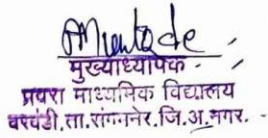 मुख्याध्यापक
प्रवरा माध्यमिक विद्यालय
ता.संगमनेर.जि.अ.नगर.